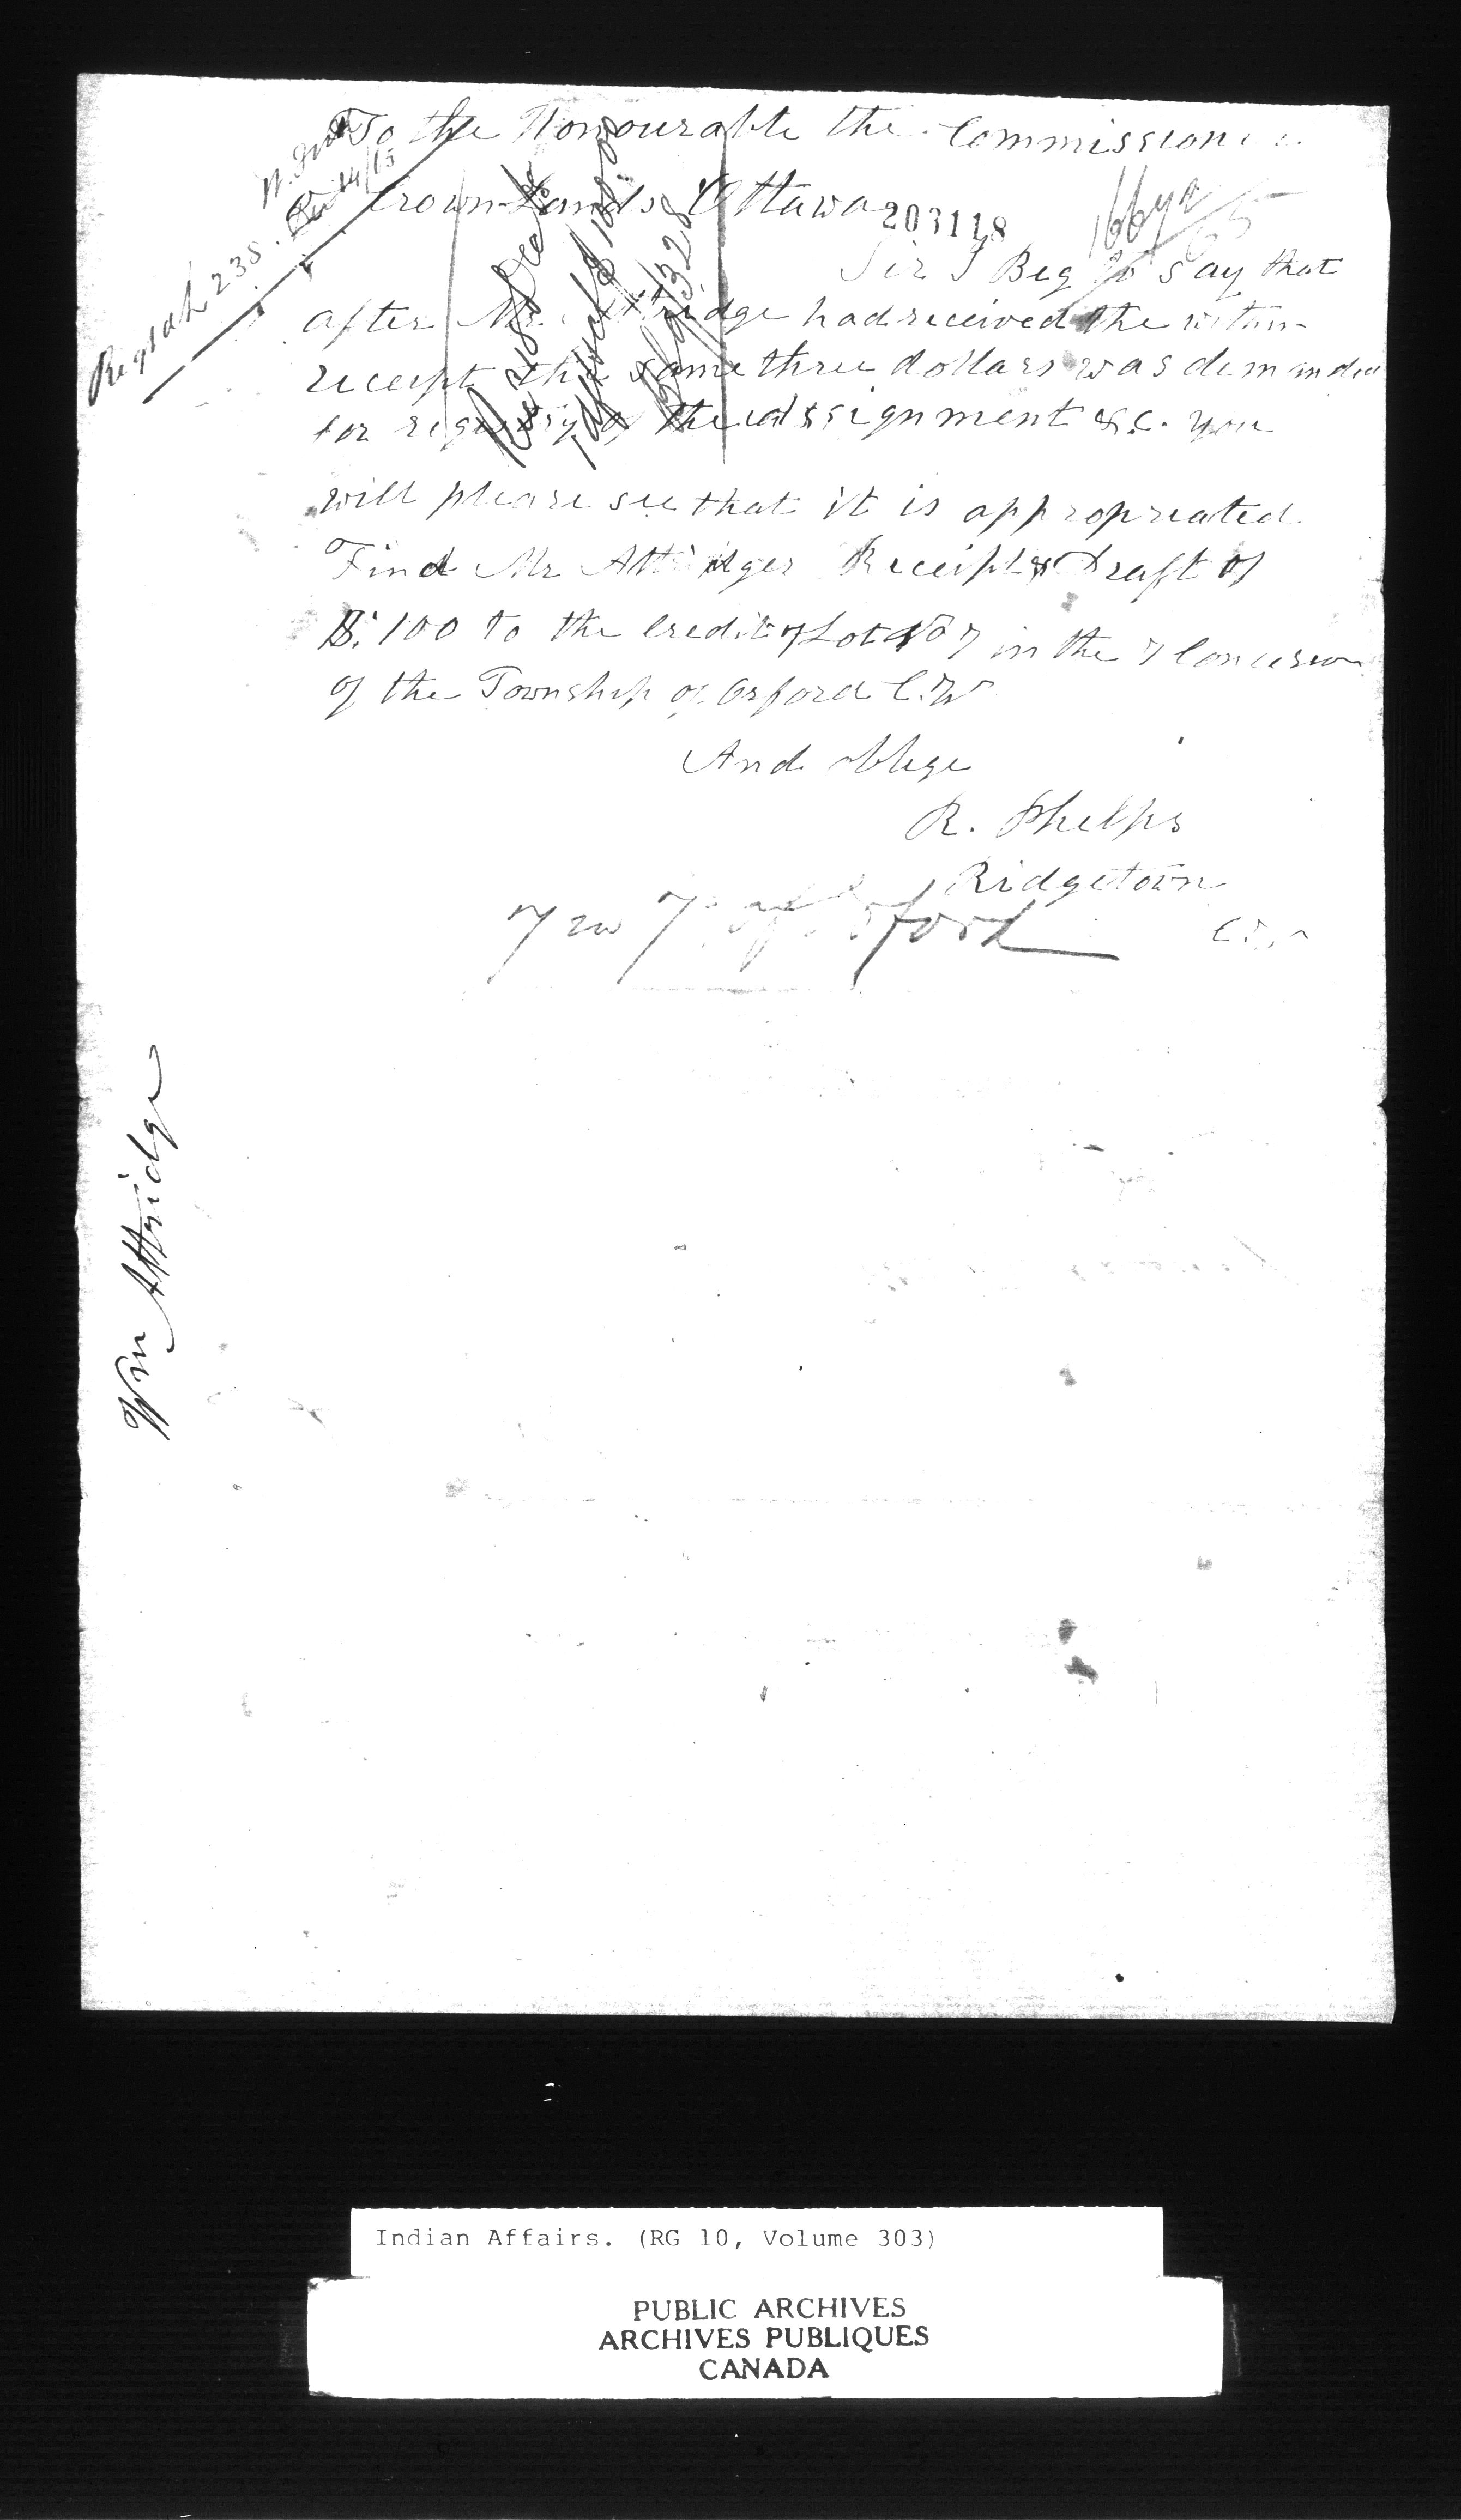 To the Honourable the Commissioner
Crown Lands Ottawa
203118
Sir I Beg to say that
after Mr. Attridge had received the within
receipt the same three dollars was demanded
for registry of the assignment &.c. you
will please see that it is appropreated
Find Mr Attridges Receipt & Draft of
$.100 to the Credit of Lot No 7 in the 7 Concession
of the Township of Orford C.W
And oblige
R. Phelps
Ridgetown
C.W
7 in 7 of Orford
Wm Attridge
Indian Affairs. (RG 10, Volume 303)
PUBLIC ARCHIVES
ARCHIVES PUBLIQUES
CANADA